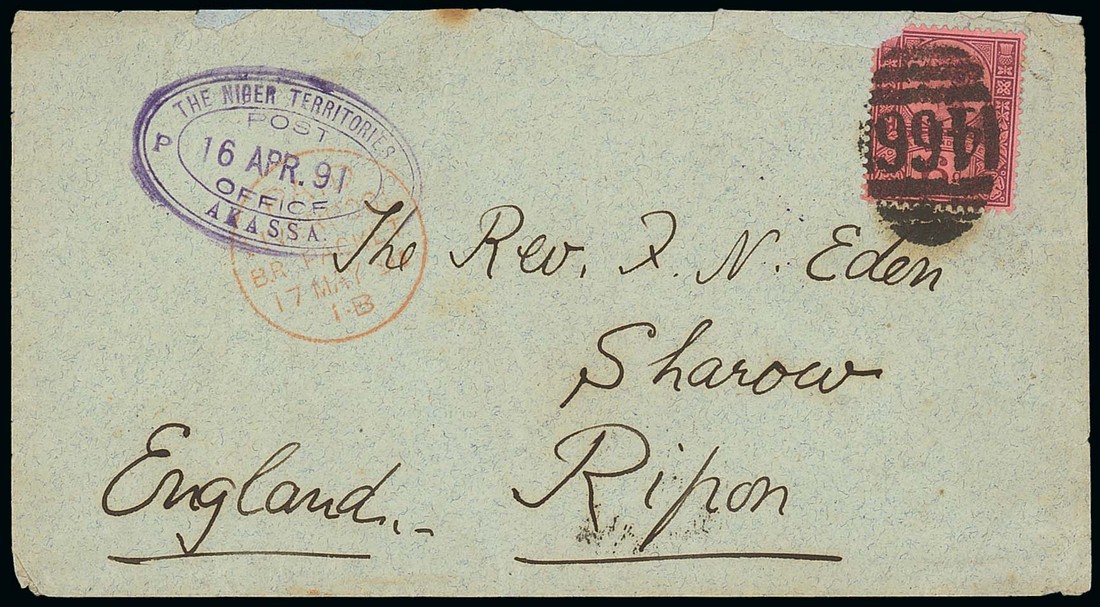 THE NIGER TERRITORIES
POST
P
16 APR. 91
OFFICE
AKASSA.
BR. PACKET
17 MAY
1·B
466
The Rev. F. N. Eden
Sharow
Ripon
England